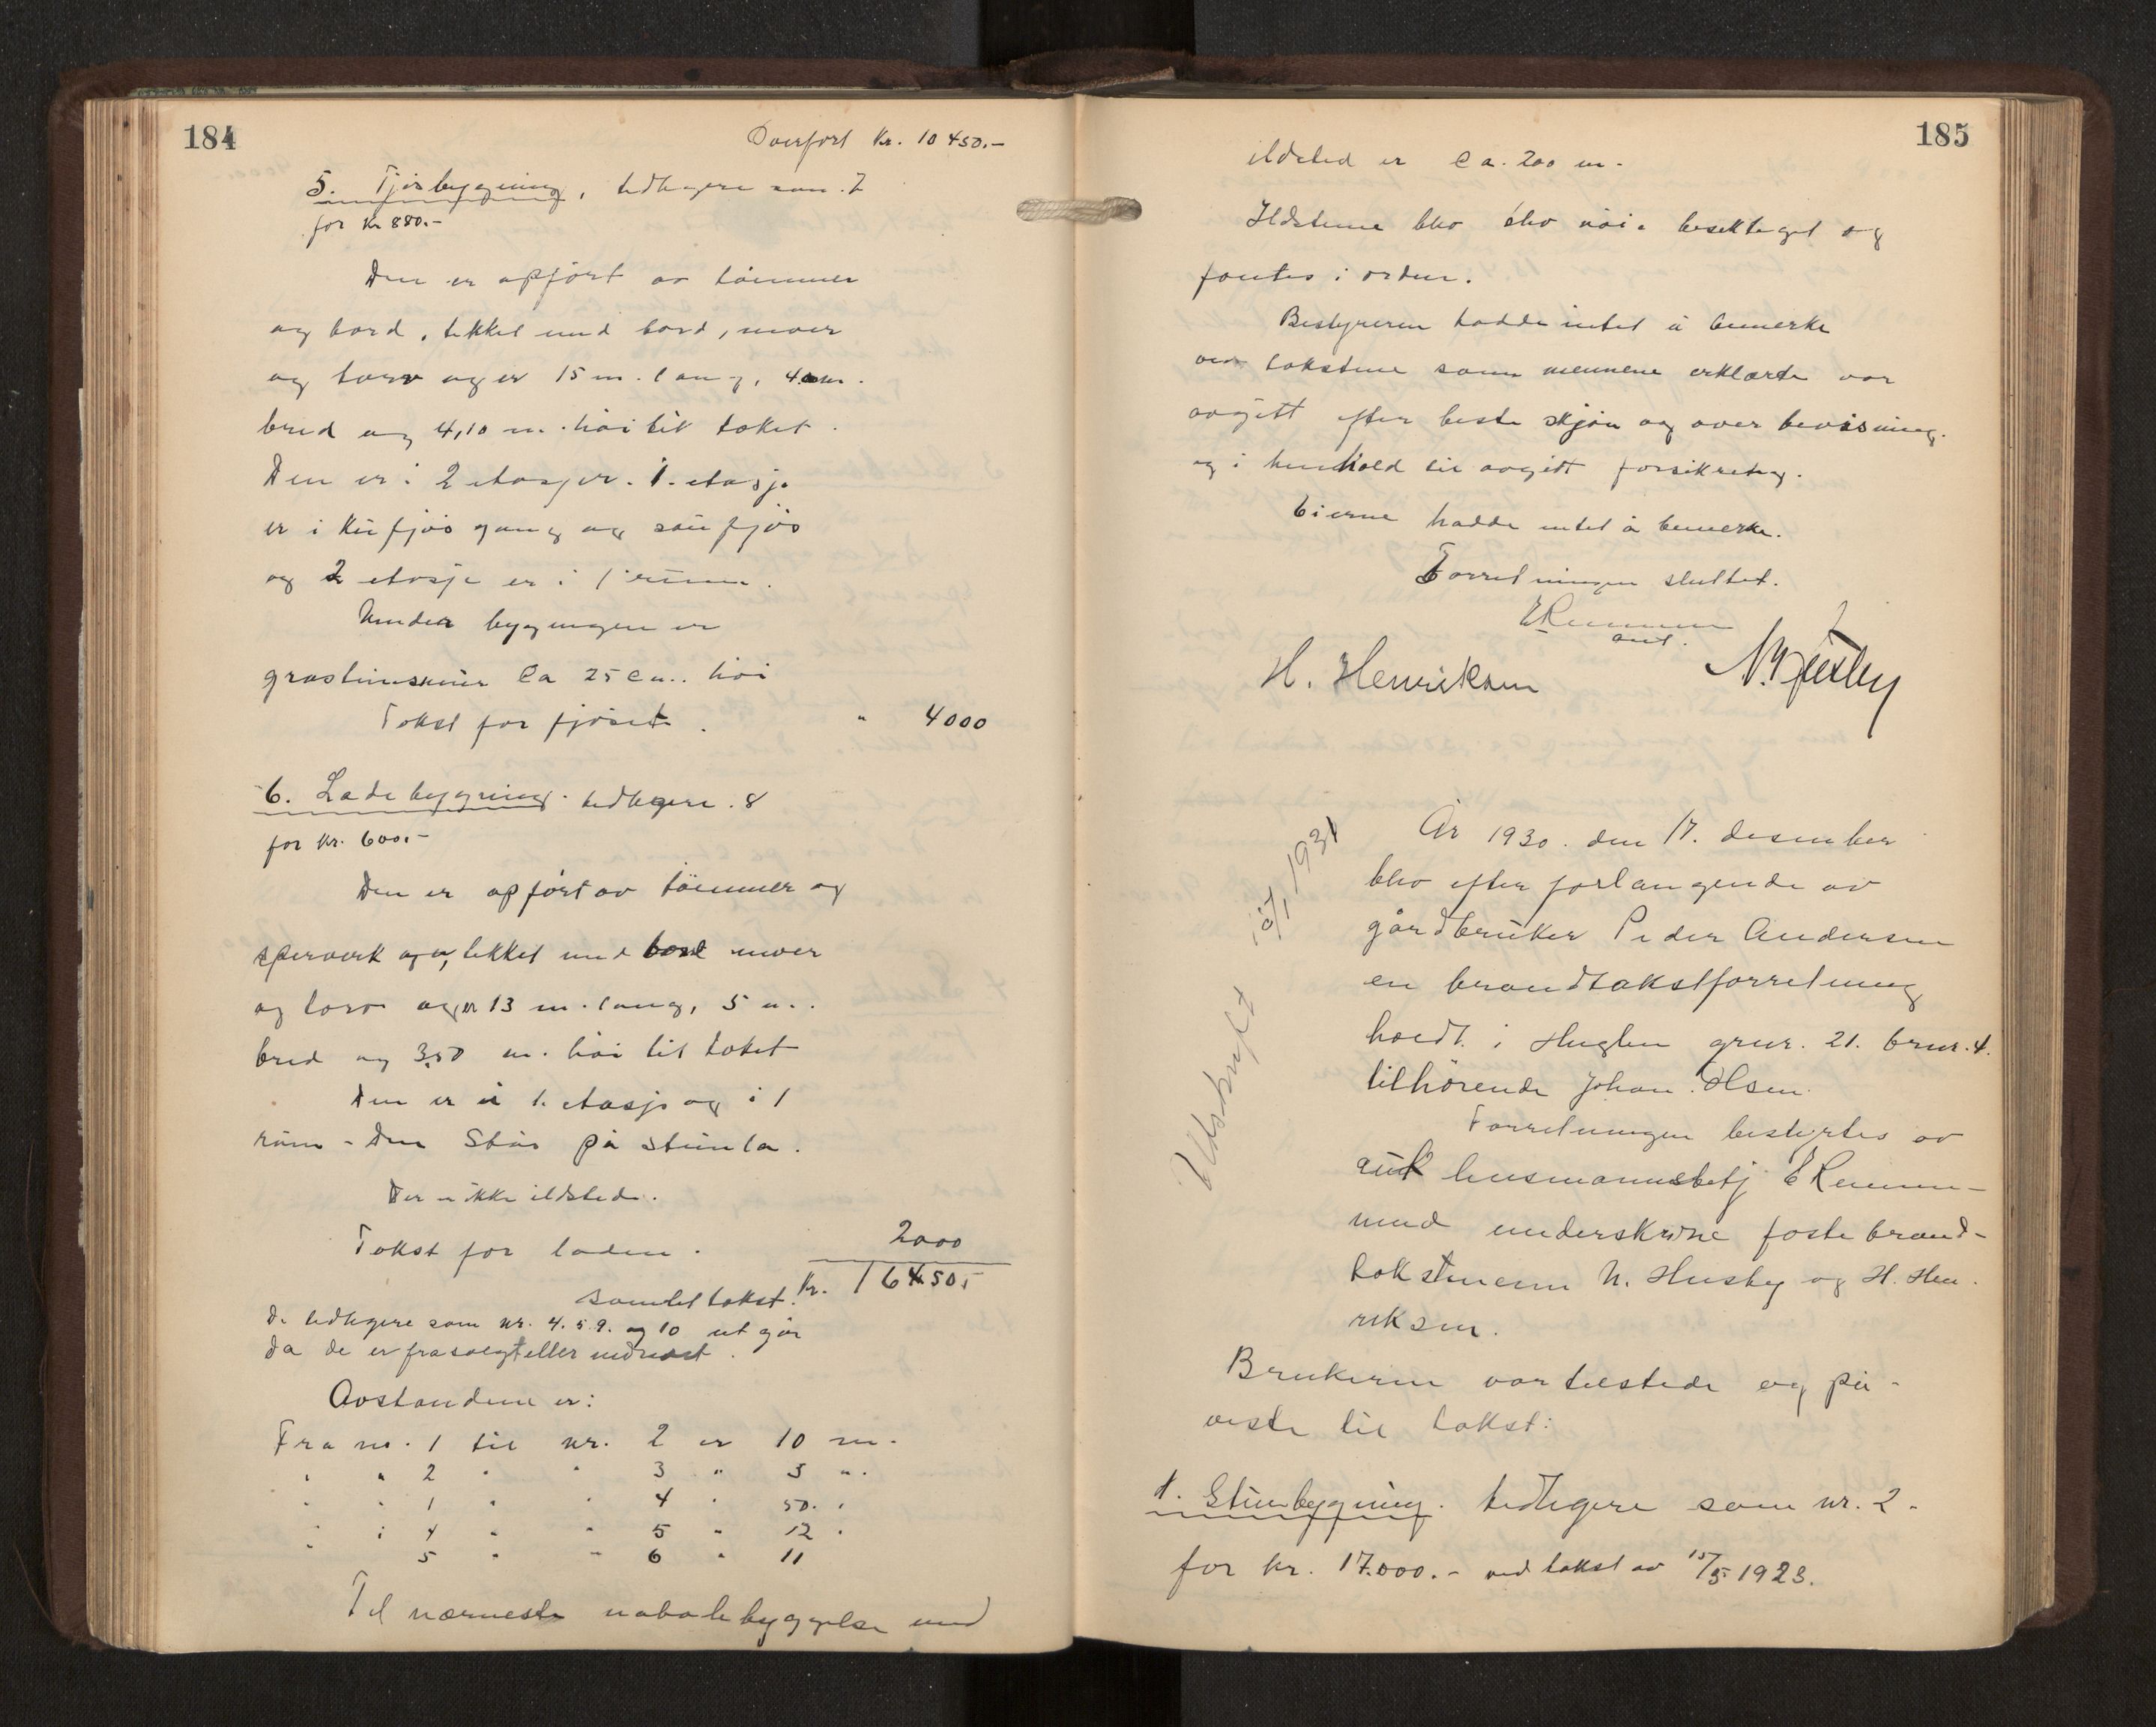 184
Overført Kr. 10 450.-
5. Fjøsbygning, tidligere som 7
for Kr 880.-
Den er opført av tømmer
og bord, tekket med bord, never
og torv og er 15 m. lang,
bred og 4,10 m. høi til taket.
Den er i 2 etasjer. 1. etasje
er i kufjøs gang og sau fjøs
og 2 etasje er i 1 rum.
Under bygningen er
gråstensmur Ca 25 cm. høi
Takst for fjøset. " 4000
6. Ladebygning. tidligere 8
for kr. 600.-
Den er opført av tømmer og
sperverk og er tekket med bord never
og torv og er 13 m. lang, 5 m.
bred og 3,50 m. høi til taket
Den er i 1. etasje og i 1
rum - Den står på steinla.
Der er ikke ildsted.
Takst for laden. 2000
Samlet takst. Kr. 16450.-
De tidligere som nr. 4. 5. 9. og 10 utgår
da de er frasolgt eller nedrevet.
Avstandene er:
Fra nr. 1 til nr. 2 er 10 m.
" " 2 " " 3 " 5 m.
" " 1 " " 4 " 50. "
" " 4 " " 5 " 12 "
" 5 " " 6 " 11
Til nærmeste nabobebyggelse med
185
ildsted er Ca. 200 m.
Ildstedene blev nøie besiktiget og
fantes i orden.
Bestyreren hadde intet å bemerke
ved takstene som mennene erklærte var
avgitt efter beste skjøn og overbevisning
og i henhold til avgitt forsikring.
Eierne hadde intet å bemerke.
Forretningen sluttet.
E Remmen
aut.
H. Henriksen N. Husby
Utskrift 15/1 1931
År 1930. den 17. desember
blev efter forlangende av
gårdbruker Peder Andersen
en brandtakstforretning
holdt i Huglen grnr. 21. brnr. 4.
tilhørende Johan Olsen.
Forretningen bestyrtes av
aut lensmannsbetj E Remmen
med underskrevne faste brand-
takstmenn N. Husby og H. Hen
riksen.
Brukeren var tilstede og på-
viste til takst:
1. Stuebygning. tidligere som nr. 2.
for kr. 17.000.- ved takst av 15/5 1923.